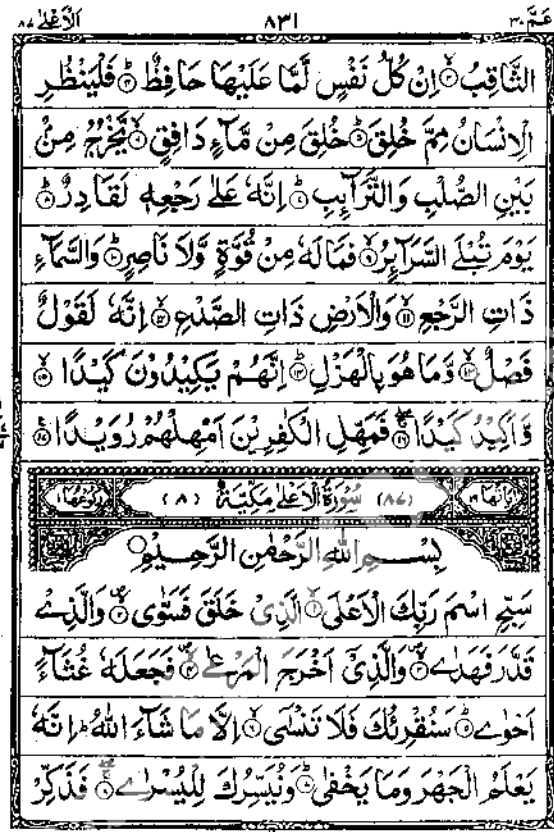 عَمَّ ٣٠ ٨٣١ اَلْاَعْلٰى ٨٧
الثَّاقِبُ ۙ﴿۳﴾ اِنْ كُلُّ نَفْسٍ لَّمَّا عَلَیْهَا حَافِظٌ ؕ﴿۴﴾ فَلْیَنْظُرِ
الْاِنْسَانُ مِمَّ خُلِقَ ؕ﴿۵﴾ خُلِقَ مِنْ مَّآءٍ دَافِقٍ ۙ﴿۶﴾ یَّخْرُجُ مِنْۢ
بَیْنِ الصُّلْبِ وَالتَّرَآىِٕبِ ؕ﴿۷﴾ اِنَّهٗ عَلٰی رَجْعِهٖ لَقَادِرٌ ؕ﴿۸﴾
یَوْمَ تُبْلَی السَّرَآىِٕرُ ۙ﴿۹﴾ فَمَا لَهٗ مِنْ قُوَّةٍ وَّلَا نَاصِرٍ ؕ﴿۱۰﴾ وَالسَّمَآءِ
ذَاتِ الرَّجْعِ ۙ﴿۱۱﴾ وَالْاَرْضِ ذَاتِ الصَّدْعِ ۙ﴿۱۲﴾ اِنَّهٗ لَقَوْلٌ
فَصْلٌ ۙ﴿۱۳﴾ وَّمَا هُوَ بِالْهَزْلِ ؕ﴿۱۴﴾ اِنَّهُمْ یَكِیْدُوْنَ كَیْدًا ۙ﴿۱۵﴾
وَّاَكِیْدُ كَیْدًا ۚۖ﴿۱۶﴾ فَمَهِّلِ الْكٰفِرِیْنَ اَمْهِلْهُمْ رُوَیْدًا ﴿۱۷﴾
اٰیَاتُهَا ١٩ (٨٧) سُوْرَةُ الْاَعْلٰى مَكِّیَّةٌ (٨) رُكُوْعُهَا ١
بِسْمِ اللّٰهِ الرَّحْمٰنِ الرَّحِیْمِ
سَبِّحِ اسْمَ رَبِّكَ الْاَعْلَی ۙ﴿۱﴾ الَّذِیْ خَلَقَ فَسَوّٰی ۪ۙ﴿۲﴾ وَالَّذِیْ
قَدَّرَ فَهَدٰی ۪ۙ﴿۳﴾ وَالَّذِیْۤ اَخْرَجَ الْمَرْعٰی ۪ۙ﴿۴﴾ فَجَعَلَهٗ غُثَآءً
اَحْوٰی ؕ﴿۵﴾ سَنُقْرِئُكَ فَلَا تَنْسٰۤی ۙ﴿۶﴾ اِلَّا مَا شَآءَ اللّٰهُ ؕ اِنَّهٗ
یَعْلَمُ الْجَهْرَ وَمَا یَخْفٰی ؕ﴿۷﴾ وَنُیَسِّرُكَ لِلْیُسْرٰی ۚۖ﴿۸﴾ فَذَكِّرْ